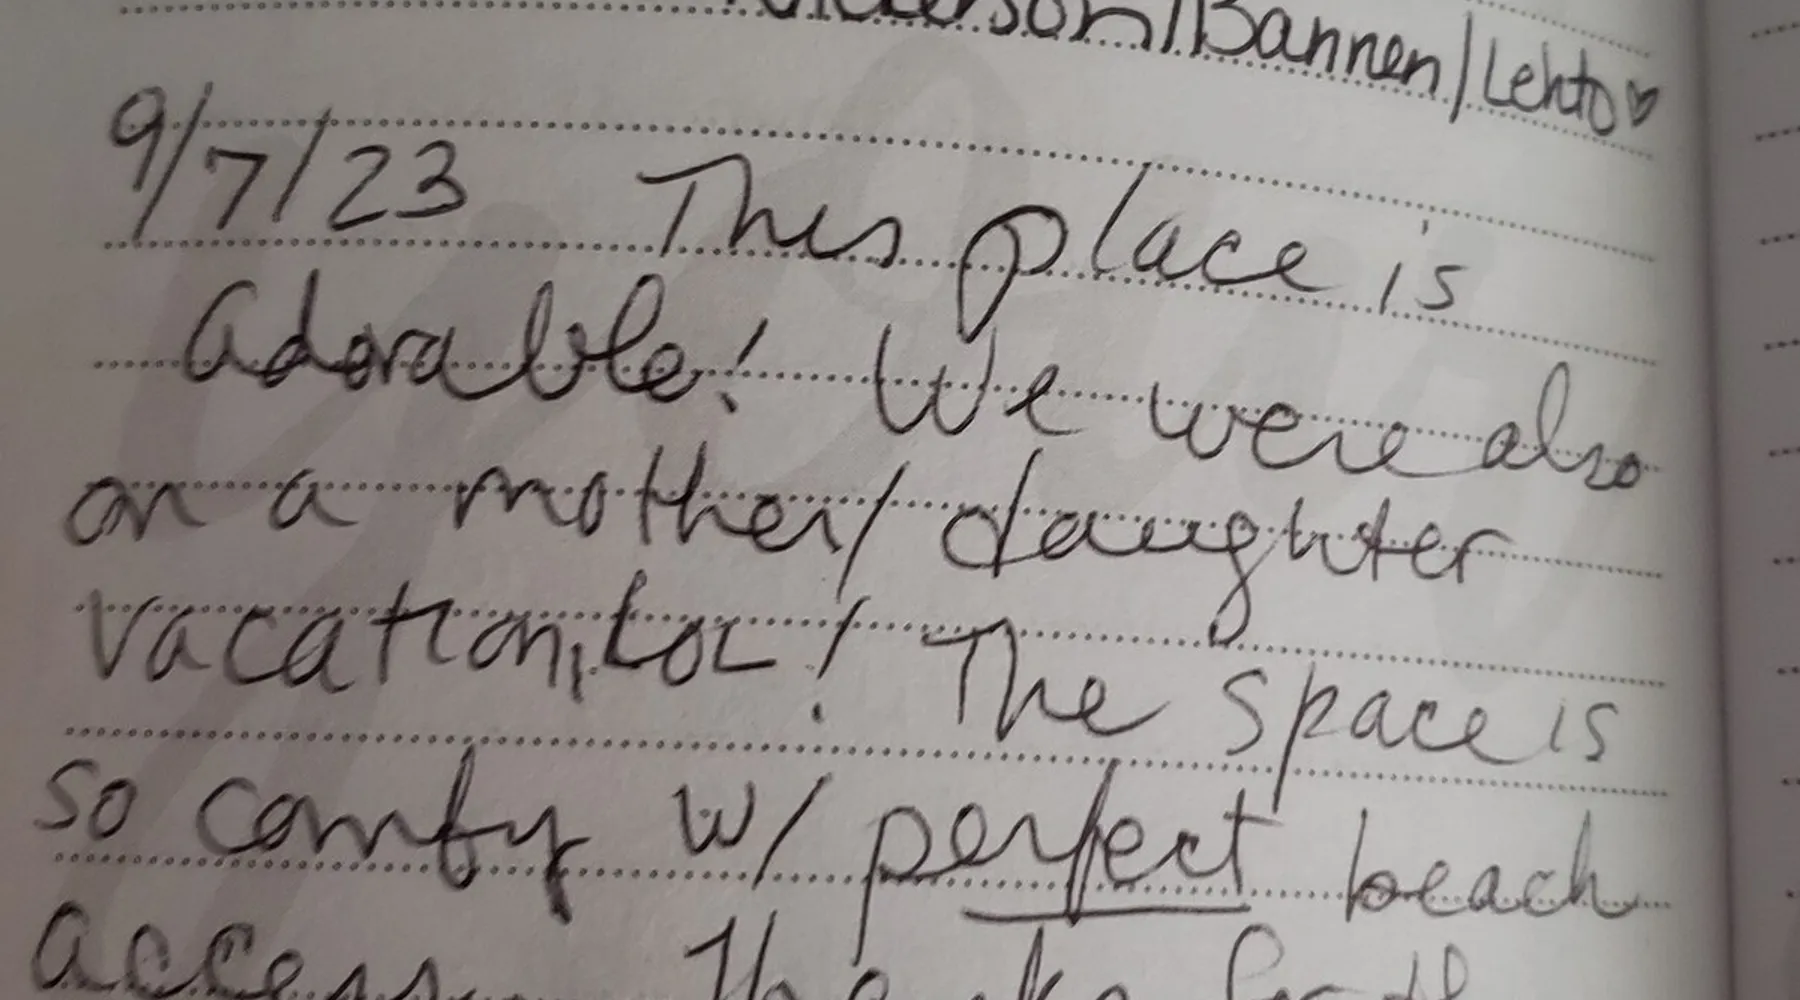 /Bannen/Lehto♥
9/7/23 This place is
adorable! We were also
on a mother/daughter
vacation, too! The space is
so comfy w/ perfect beach
access. Thanks for th